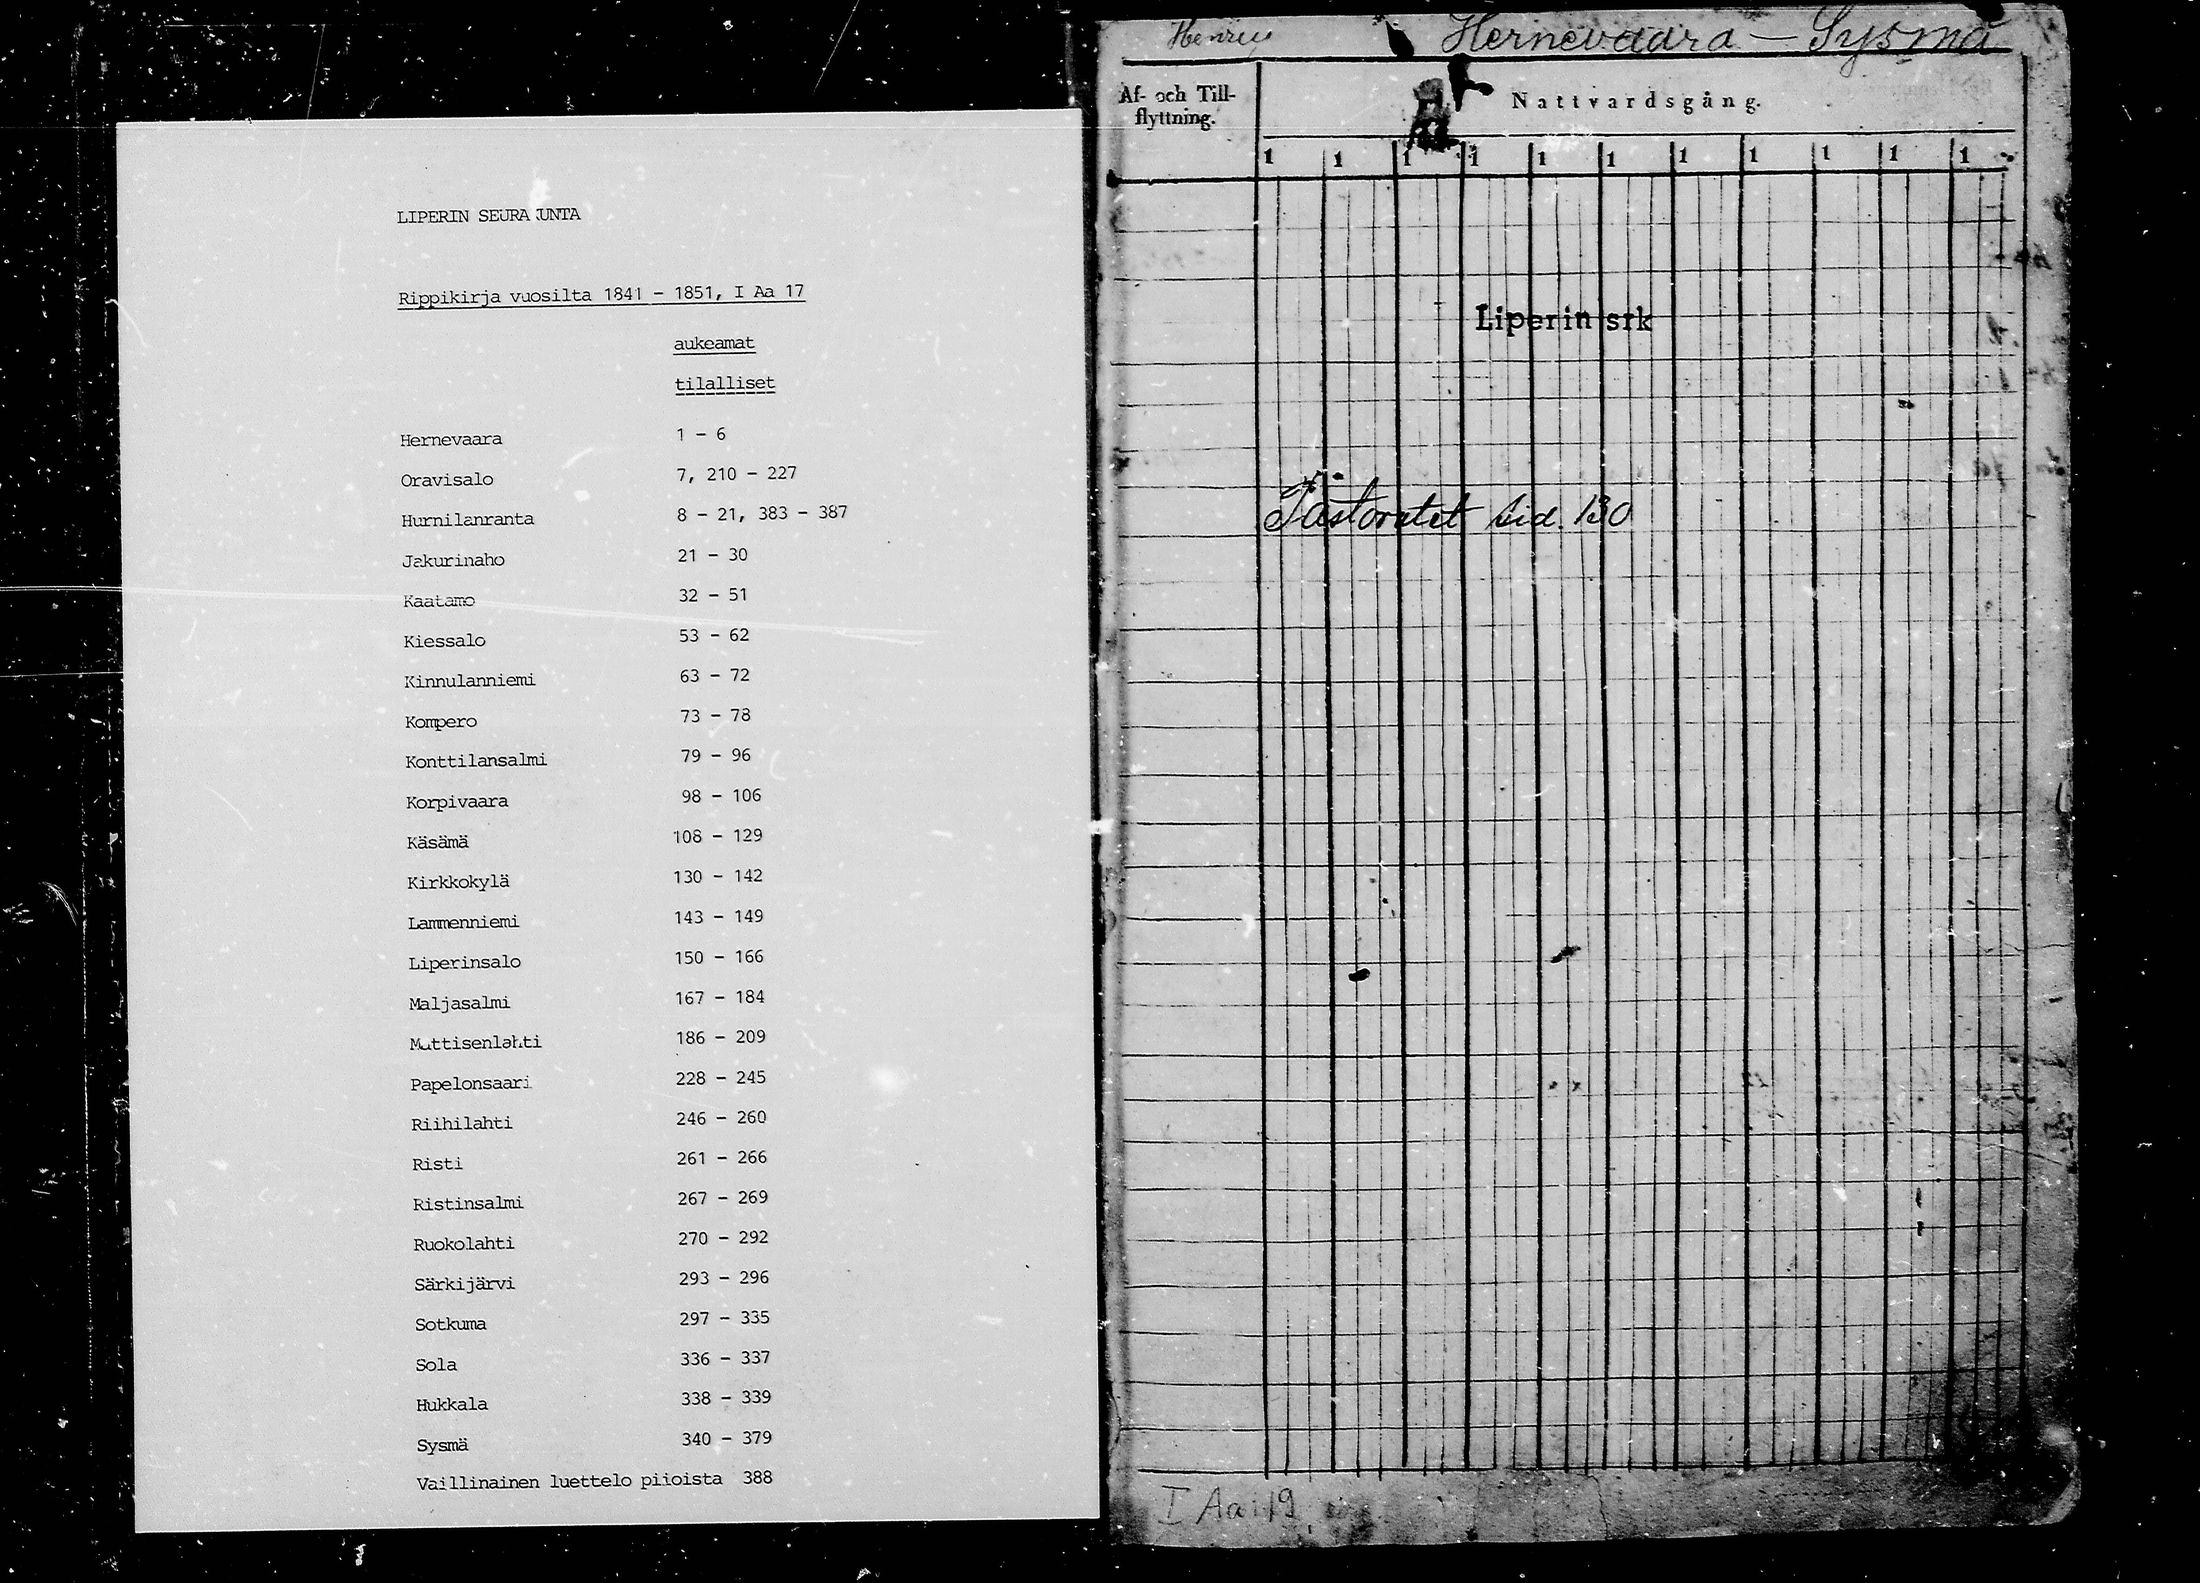 LIPERIN SEURA UNTA
Rippikirja vuosilta 1841 - 1851, I Aa 17
aukeamat
tilalliset
Hernevaara 1 - 6
Oravisalo 7, 210 - 227
Hurnilanranta 8 - 21, 383 - 387
Jakurinaho 21 - 30
Kaatamo 32 - 51
Kiessalo 53 - 62
Kinnulanniemi 63 - 72
Kompero 73 - 78
Konttilansalmi 79 - 96
Korpivaara 98 - 106
Käsämä 108 - 129
Kirkkokylä 130 - 142
Lammenniemi 143 - 149
Liperinsalo 150 - 166
Maljasalmi 167 - 184
Mattisenlahti 186 - 209
Papelonsaari 228 - 245
Riihilahti 246 - 260
Risti 261 - 266
Ristinsalmi 267 - 269
Ruokolahti 270 - 292
Särkijärvi 293 - 296
Sotkuma 297 - 335
Sola 336 - 337
Hukkala 338 - 339
Sysmä 340 - 379
Vaillinainen luettelo piioista 388
Hernevaara - Sysmä
Af- och Till-
flyttning.
Nattvardsgång.
1 1 1 1 1 1 1 1 1 1 1
Liperin srk
Pastoratet sid. 130
I Aa:19